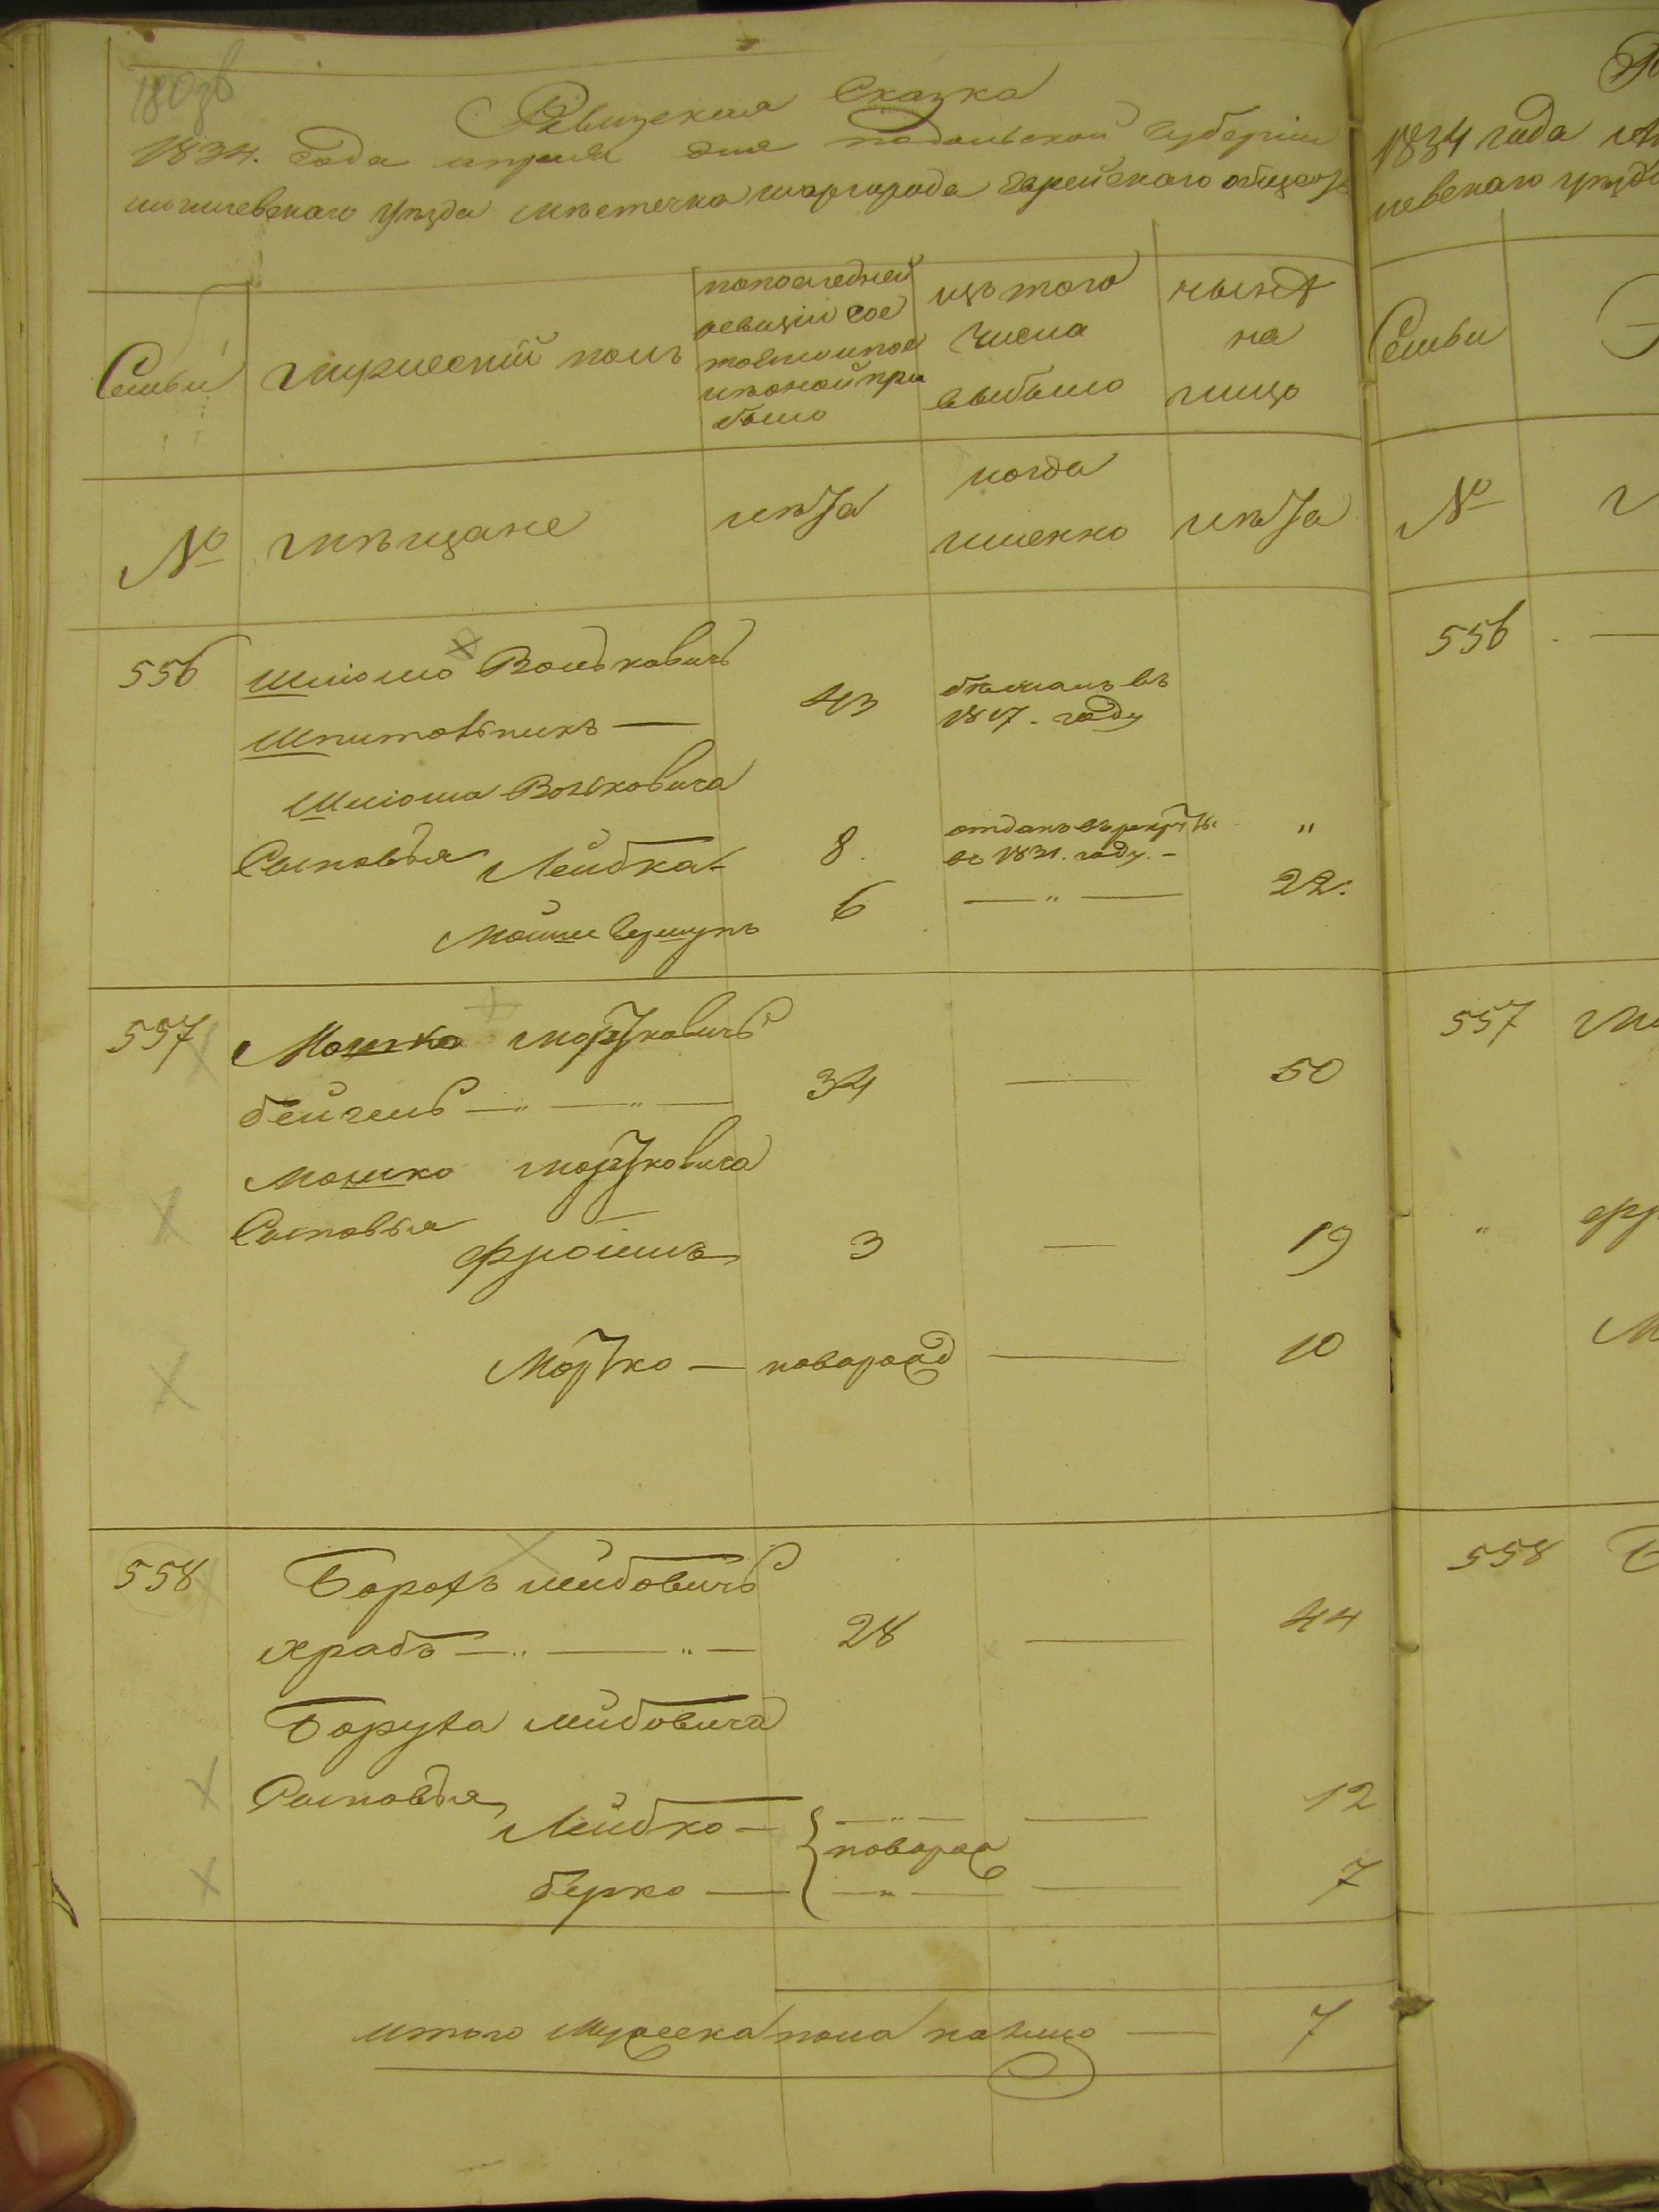 180 зв
Ревизская Сказка
1834. года апреля дня подольской Губернии
могилевского уезда местечка шаргорода Еврейского общества
Семьи
мужеский полъ
по последней ревизіи состояло и после оной прибыло
изъ того числа выбыло
ныне на лицо
№
мещане
лета
когда именно
лета
556
Шліомо Вольковичъ
43
бежалъ въ 1817. году
Шпитовникъ —
Шліома Вольковича
Сыновья Лейбка
8.
отданъ въ рекруты въ 1831. году. –
"
Мошле Вершупъ
6
— " —
22.
557
Мошко Мортковичъ
бейчель — " — " —
34
—
50
Мошко мортковича
Сыновья Фроимъ
3
—
19
Мортко — новорожд
—
10
558
Борохъ лейбовичъ
храбъ — " — " —
28
—
44
Боруха лейбовича
Сыновья Лейбко —
— " —
—
12
новорож
берко —
— " —
—
7
итого мужеска пола налицо — 7
1834 года
левскаго уезда
Семьи
№
556 . —
557
"
558